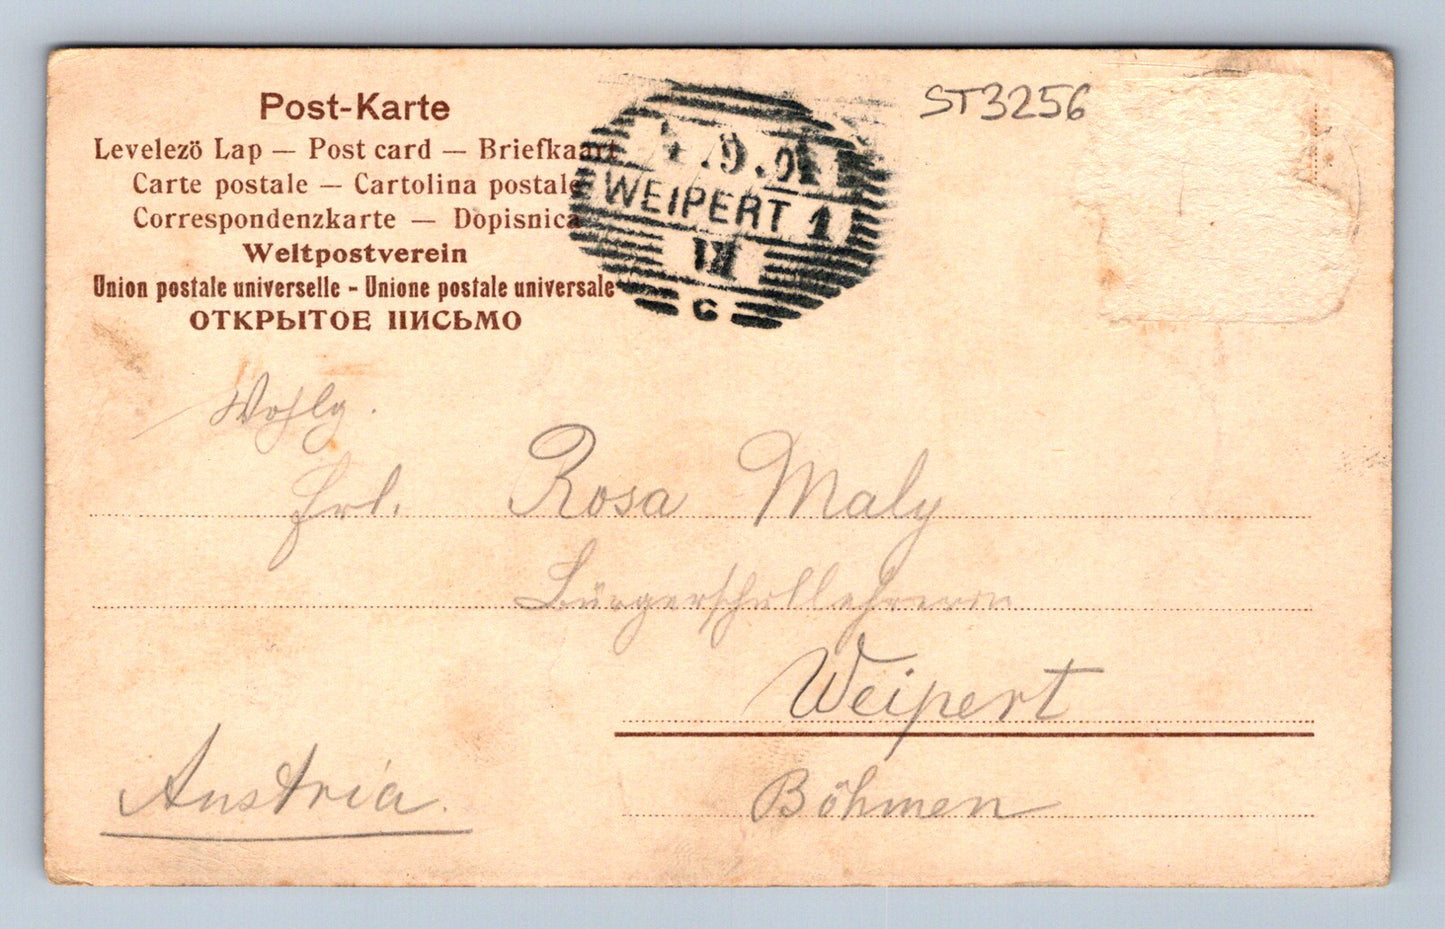 Post-Karte
Levelezö Lap — Post card — Briefkaart
Carte postale — Cartolina postale
Correspondenzkarte — Dopisnica
Weltpostverein
Union postale universelle - Unione postale universale
ОТКРЫТОЕ ПИСЬМО
WEIPERT 1
C
ST3256
Wohlg.
Frl. Rosa Maly
Bürgerschullehrerin
Weipert
Böhmen
Austria.